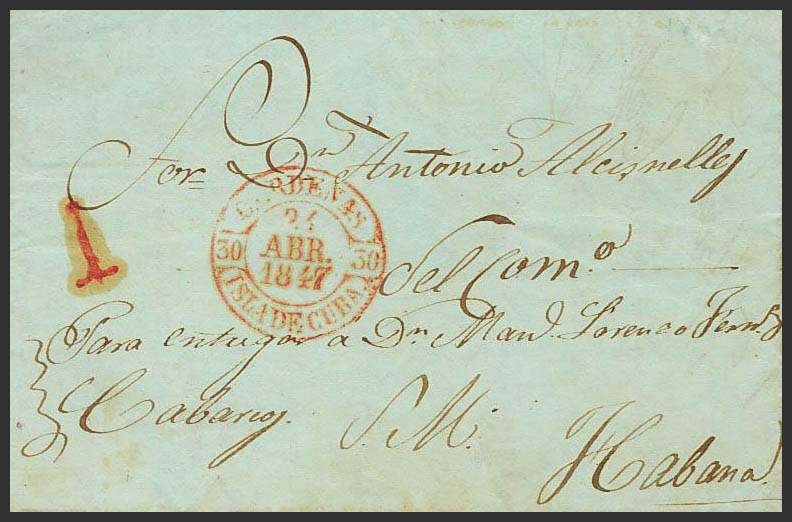 Sor Dn Antonio
1
CARDENAS
24
ABR.
1847
30 30
ISLA DE CUBA
del Com.o
Para entregar a Dn Man.l Lorenzo Fern.z
Cabanas.
S. M.
Habana.